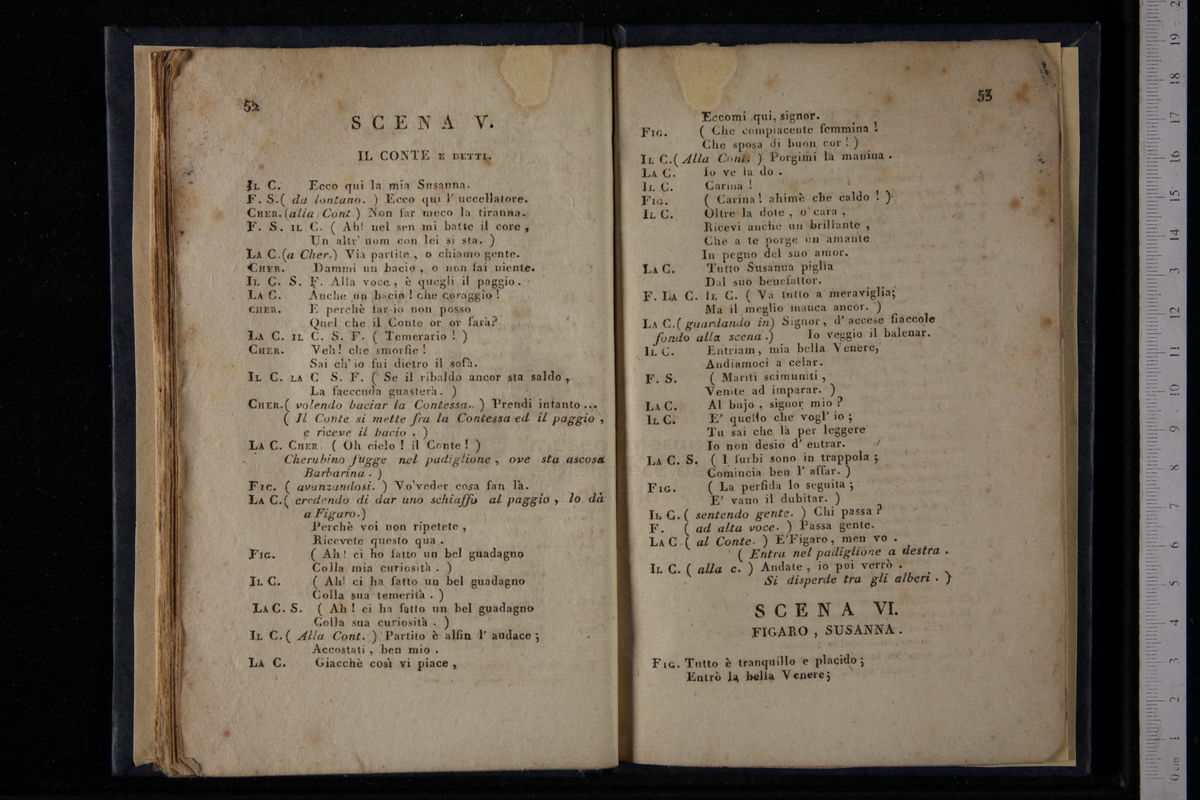 52
SCENA V.
IL CONTE E DETTI.
IL C. Ecco qui la mia Susanna.
F. S. ( da lontano. ) Ecco qui l' uccellatore.
CHER. (alla Cont.) Non far meco la tiranna.
F. S. IL C. ( Ah! nel sen mi batte il core,
Un altr' uom con lei si sta. )
LA C. (a Cher.) Via partite, o chiamo gente.
CHER. Dammi un bacio, o non fai niente.
IL C. S. F. Alla voce, è quegli il paggio.
LA C. Anche un bacio! che coraggio!
CHER. E perchè far io non posso
Quel che il Conte or or farà?
LA C. IL C. S. F. ( Temerario! )
CHER. Veh! che smorfie!
Sai ch' io fui dietro il sofà.
IL C. LA C S. F. ( Se il ribaldo ancor sta saldo,
La faccenda guasterà. )
CHER. ( volendo baciar la Contessa. ) Prendi intanto...
( Il Conte si mette fra la Contessa ed il paggio,
e riceve il bacio. )
LA C. CHER. ( Oh cielo! il Conte! )
Cherubino fugge nel padiglione, ove sta ascosa
Barbarina. )
FIG. ( avanzandosi. ) Vo'veder cosa fan là.
LA C. ( credendo di dar uno schiaffo al paggio, lo dà
a Figaro.)
Perchè voi non ripetete,
Ricevete questo qua.
FIG. ( Ah! ci ho fatto un bel guadagno
Colla mia curiosità. )
IL C. ( Ah! ci ha fatto un bel guadagno
Colla sua temerità. )
LA C. S. ( Ah! ci ha fatto un bel guadagno
Colla sua curiosità. )
IL C. ( Alla Cont. ) Partito è alfin l' audace;
Accostati, ben mio.
LA C. Giacchè così vi piace,
53
Eccomi qui, signor.
FIG. ( Che compiacente femmina!
Che sposa di buon cor! )
IL C. ( Alla Cont. ) Porgimi la manina.
LA C. Io ve la do.
IL C. Carina!
FIG. ( Carina! ahimè che caldo! )
IL C. Oltre la dote, o' cara,
Ricevi anche un brillante,
Che a te porge un amante
In pegno del suo amor.
LA C. Tutto Susanna piglia
Dal suo benefattor.
F. LA C. IL C. ( Va tutto a meraviglia;
Ma il meglio manca ancor. )
LA C. ( guardando in) Signor, d' accese fiaccole
fondo alla scena.) Io veggio il balenar.
IL C. Entriam, mia bella Venere,
Andiamoci a celar.
F. S. ( Mariti scimuniti,
Venite ad imparar. )
LA C. Al bujo, signor mio?
IL C. E' quello che vogl' io;
Tu sai che là per leggere
Io non desio d' entrar.
LA C. S. ( I furbi sono in trappola;
Comincia ben l' affar. )
FIG. ( La perfida lo seguita;
E' vano il dubitar. )
IL C. ( sentendo gente. ) Chi passa?
F. ( ad alta voce. ) Passa gente.
LA C ( al Conte. ) E'Figaro, men vo.
( Entra nel padiglione a destra.
IL C. ( alla c. ) Andate, io poi verrò.
Si disperde tra gli alberi. )
SCENA VI.
FIGARO, SUSANNA.
FIG. Tutto è tranquillo e placido;
Entrò la bella Venere;
0 cm 1 2 3 4 5 6 7 8 9 10 11 12 13 14 15 16 17 18 19 2